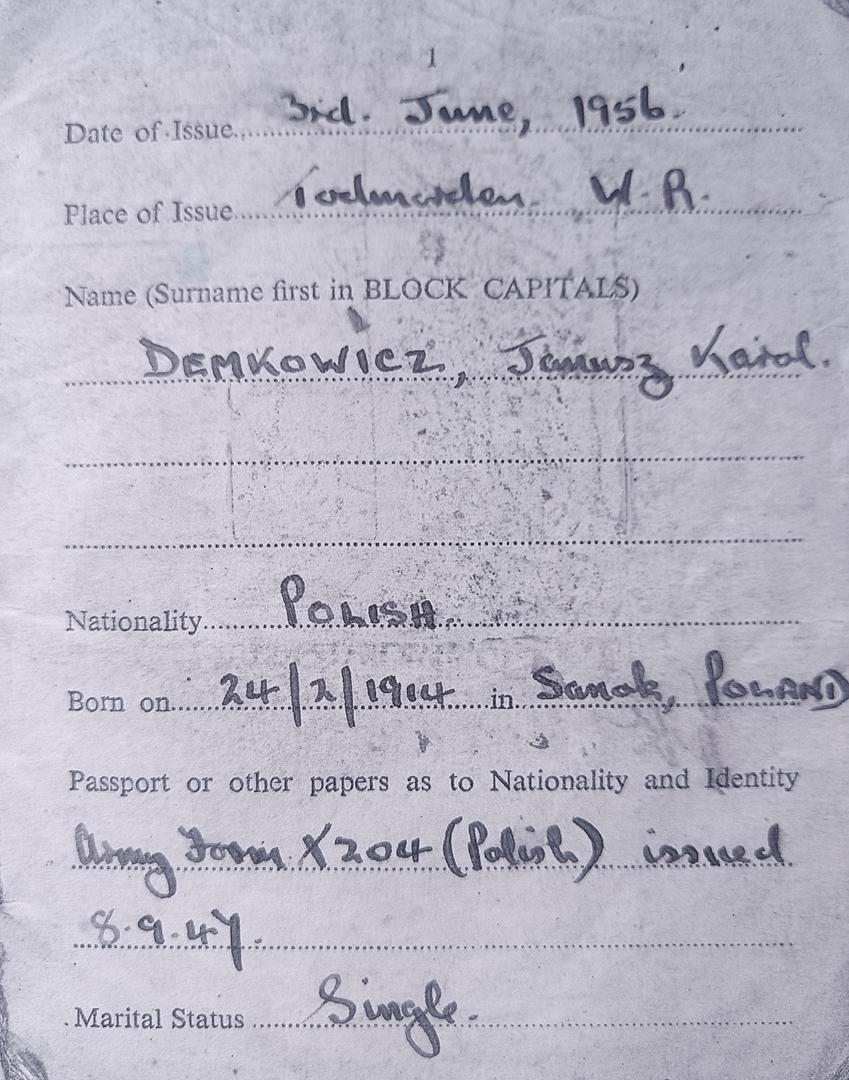 1
Date of Issue 3rd. June, 1956.
Place of Issue Todmorden. W.R.
Name (Surname first in BLOCK CAPITALS)
DEMKOWICZ, Janusz Karol.
Nationality POLISH.
Born on 24/2/1914 in Sanok, POLAND
Passport or other papers as to Nationality and Identity
Army Form X204 (Polish) issued
8.9.47.
Marital Status Single.